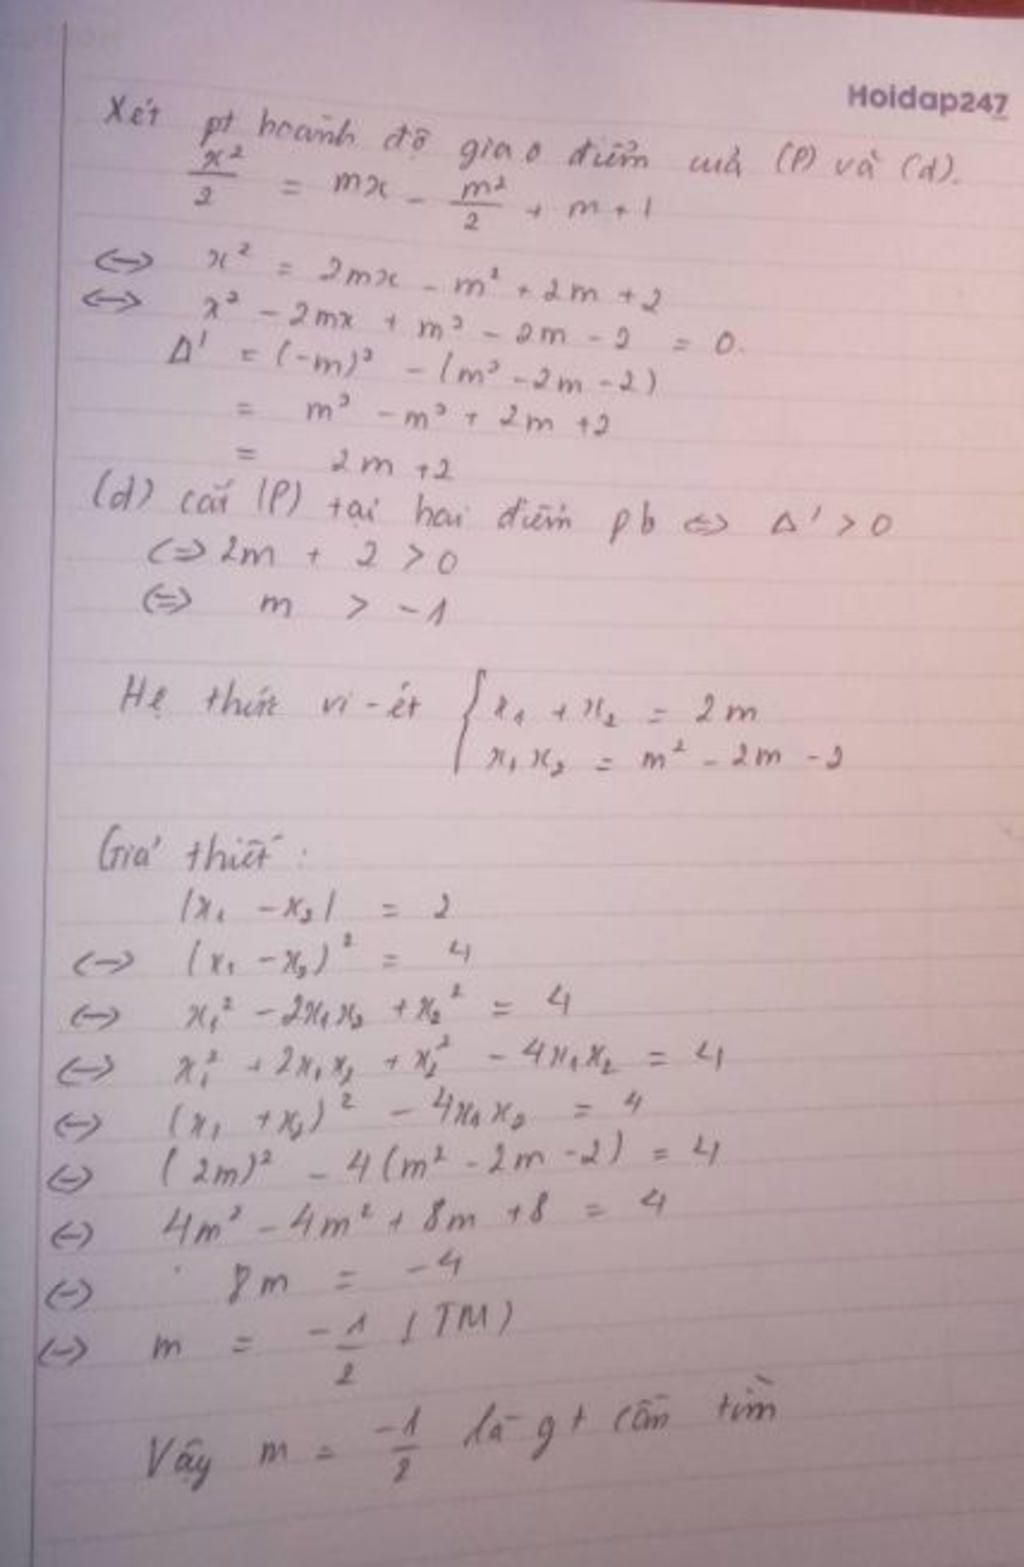 Hoidap247
Xét pt hoành độ giao điểm của (P) và (d).
x²/2 = mx - m²/2 + m + 1
<=> x² = 2mx - m² + 2m + 2
<=> x² - 2mx + m² - 2m - 2 = 0.
Δ' = (-m)² - (m² - 2m - 2)
= m² - m² + 2m + 2
= 2m + 2
(d) cắt (P) tại hai điểm pb <=> Δ' > 0
<=> 2m + 2 > 0
<=> m > -1
Hệ thức vi-ét { x₁ + x₂ = 2m
x₁x₂ = m² - 2m - 2
Giả thiết:
|x₁ - x₂| = 2
<=> (x₁ - x₂)² = 4
<=> x₁² - 2x₁x₂ + x₂² = 4
<=> x₁² + 2x₁x₂ + x₂² - 4x₁x₂ = 4
<=> (x₁ + x₂)² - 4x₁x₂ = 4
<=> (2m)² - 4(m² - 2m - 2) = 4
<=> 4m² - 4m² + 8m + 8 = 4
<=> 8m = -4
<=> m = -1/2 (TM)
Vậy m = -1/2 là gt cần tìm